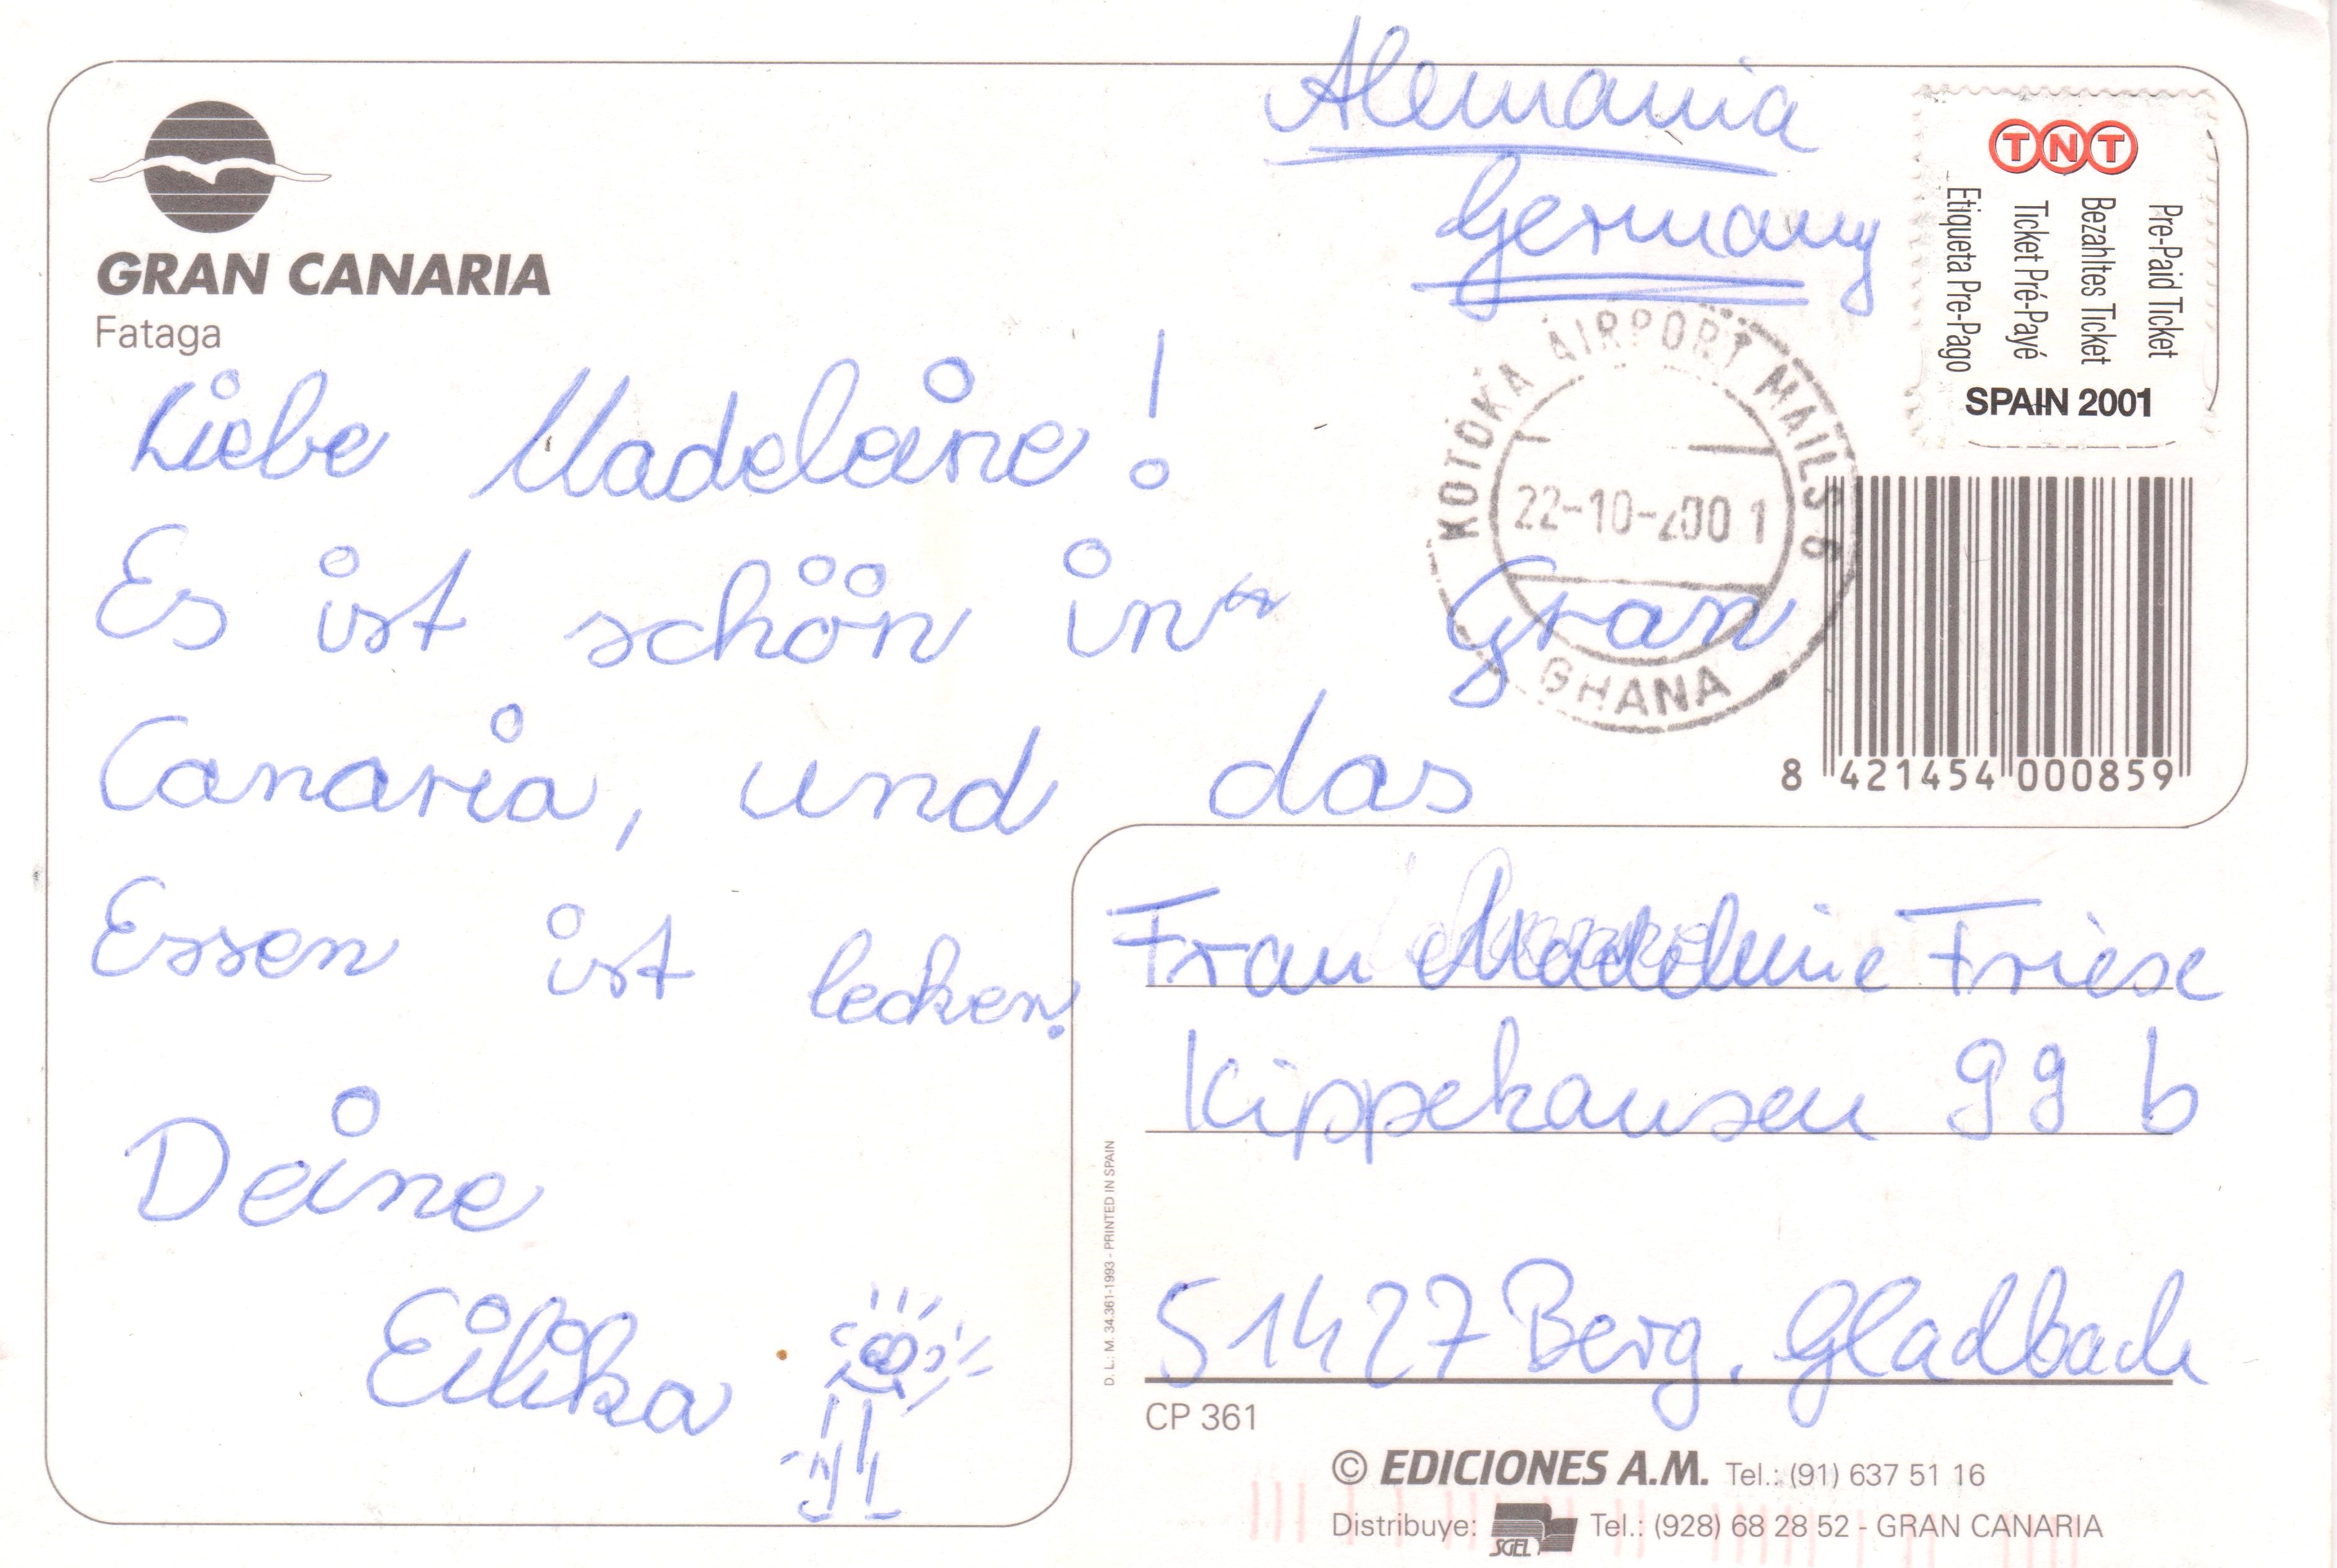 Alemania
Germany
TNT
Pre-Paid Ticket
Bezahltes Ticket
Ticket Pré-Payé
Etiqueta Pre-Pago
SPAIN 2001
GRAN CANARIA
Fataga
KOTOKA AIRPORT MAILS 6
22-10-2001
GHANA
8 421454 000859
Liebe Madeleine!
Es ist schön in Gran
Canaria, und das
Essen ist lecker.
Deine
Eilika
Frau Madeleine Friese
Kippekausen 99 b
51427 Berg. Gladbach
D. L.: M. 34.361-1993 - PRINTED IN SPAIN
CP 361
© EDICIONES A.M. Tel.: (91) 637 51 16
Distribuye: SGEL Tel.: (928) 68 28 52 - GRAN CANARIA